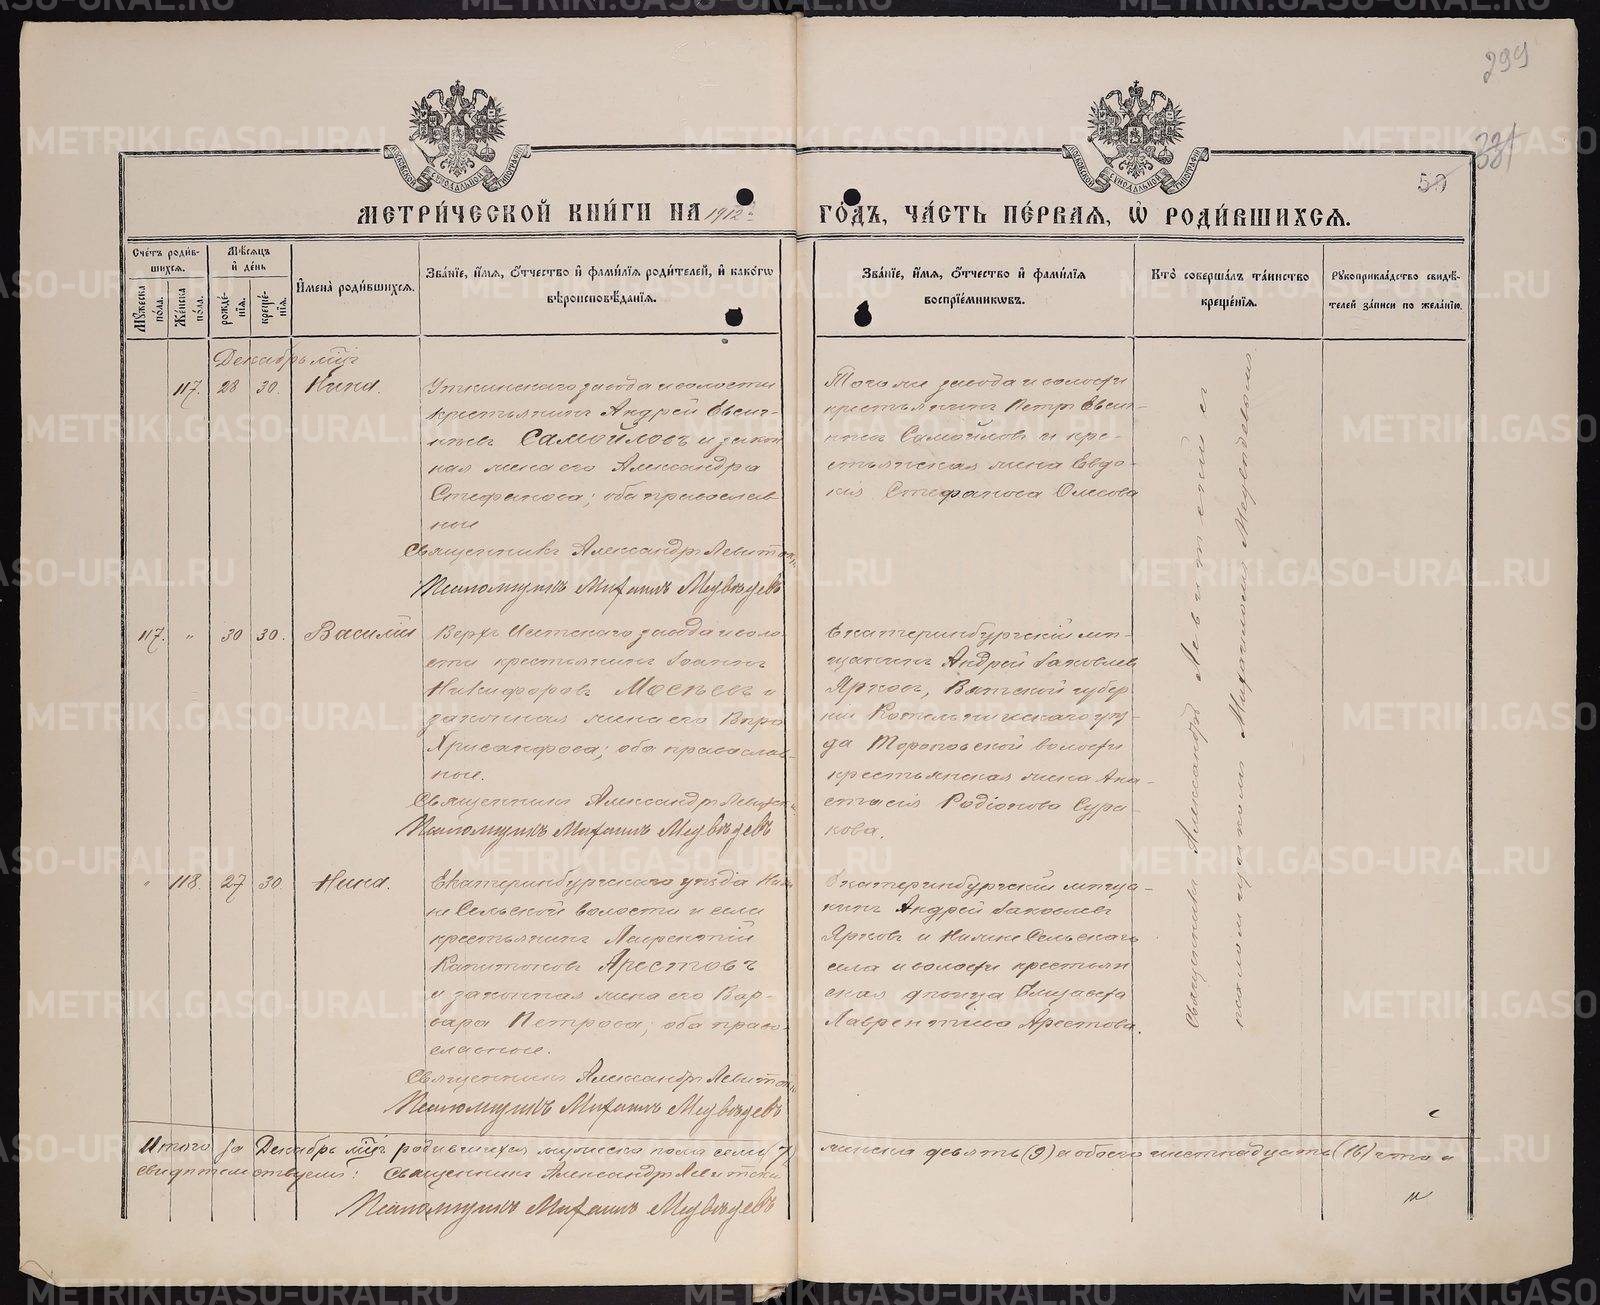 299
331
50
МЕТРИ́ЧЕСКОЙ КНИ́ГИ НА 1912 ГО́ДЪ, ЧА́СТЬ ПЕ́РВАЯ, Ѡ РОДИ́ВШИХСЯ.
Сче́тъ роди́в-
шихся.
Мѣ́сяцъ
и҆ де́нь
Мꙋ́жеска
по́ла.
Же́нска
по́ла.
рожде́-
нїя.
креще́-
нїя.
И҆мена̀ роди́вшихся.
Зва́нїе, и҆́мя, ѻ҆́тчество и҆ фами́лїя роди́телей, и҆ како́гѡ
вѣроисповѣ́данїя.
Зва́нїе, и҆́мя, ѻ҆́тчество и҆ фами́лїя
воспрїе́мникѡвъ.
Кто̀ соверша́лъ та́инство
креще́нїя.
Рꙋкоприкла́дство свидѣ́-
телей за́писи по жела́нїю.
Декабрь мцъ
117. 28 30. Нина.
Уткинскаго завода и волости
крестьянинъ Андрей Евсиг-
нѣевъ Самойловъ и закон
ная жена его Александра
Стефанова; оба православ
ные
Священникъ Александръ Левитскій
Псаломщикъ Михаилъ Медвѣдевъ
Того же завода и волости
крестьянинъ Петръ Евсиг-
нѣевъ Самойловъ и кре-
стьянская жена Евдо-
кія Стефанова
117. " 30 30. Василій
Верхъ Исетскаго завода и воло-
сти крестьянинъ Іоаннъ
Никифоровъ и
законная жена его Вѣра
Хрисанфова; оба православ-
ные.
Священникъ Александръ Левитскій
Псаломщикъ Михаилъ Медвѣдевъ
Екатеринбургскій мѣ-
щанинъ Андрей Іаковлевъ
Ярковъ, Вятской губер
ніи Котельническаго уѣз-
да волости
крестьянская жена Ана-
стасія Родіонова Сура-
кова.
" 118. 27 30. Нина.
Екатеринбургскаго уѣзда Ниж-
не Сельской волости и села
крестьянинъ Лаврентій
Капитоновъ Арестовъ
и законная жена его Вар-
вара Петрова; оба право-
славные.
Священникъ Александръ Левитскій
Псаломщикъ Михаилъ Медвѣдевъ
Екатеринбургскій мѣща-
нинъ Андрей Іаковлевъ
Ярковъ и Нижне Сельскаго
села и волости крестьян
ская дѣвица Елизавета
Лаврентіева Арестова.
Священникъ Александръ Левитскій съ
псаломщикомъ Михаиломъ Медвѣдевымъ
Итого за Декабрь мцъ родившихся мужеска пола семь (7) женска девять (9) а обоего шестнадцать (16) что и
свидѣтельствуемъ: Священникъ Александръ Левитскій
Псаломщикъ Михаилъ Медвѣдевъ